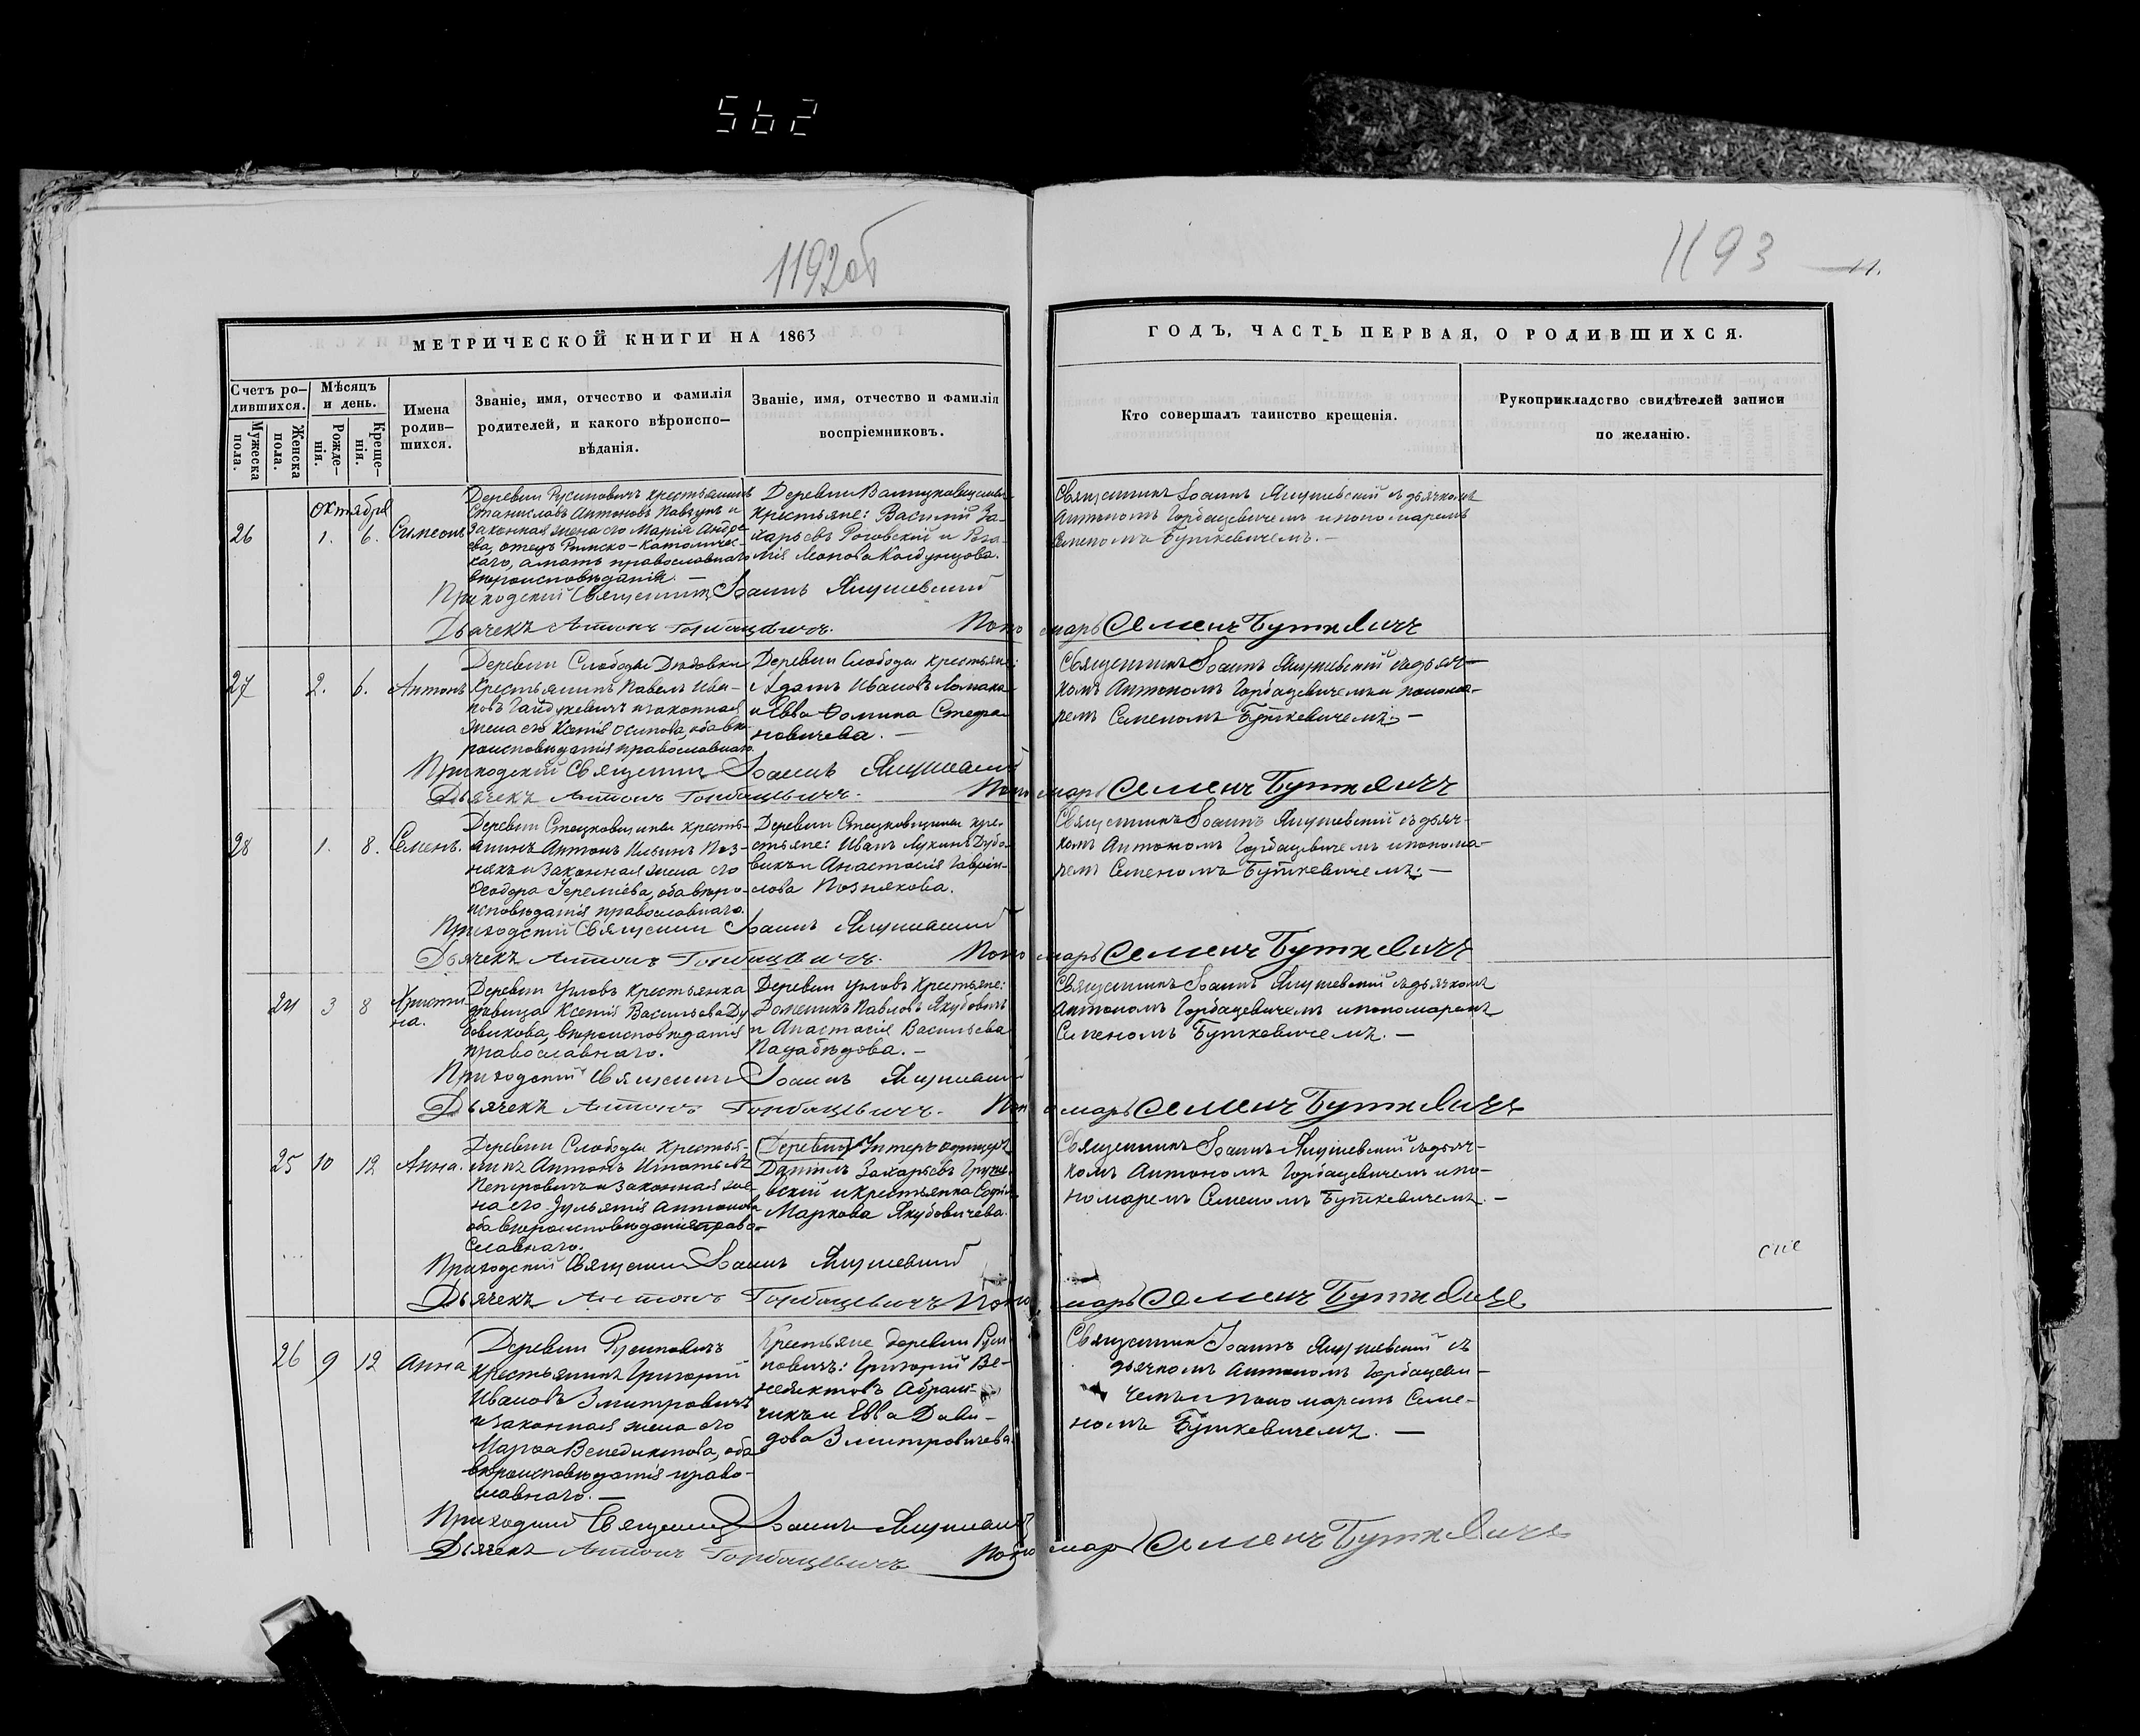 562
1192об
1193
11.
МЕТРИЧЕСКОЙ КНИГИ НА 1863
ГОДЪ, ЧАСТЬ ПЕРВАЯ, О РОДИВШИХСЯ.
Счетъ ро-
дившихся.
Мужеска
пола.
Женска
пола.
Мѣсяцъ
и день.
Рожде-
нія.
Креще-
нія.
Имена
родив-
шихся.
Званіе, имя, отчество и фамилія
родителей, и какого вѣроиспо-
вѣданія.
Званіе, имя, отчество и фамилія
воспріемниковъ.
Кто совершалъ таинство крещенія.
Рукоприкладство свидѣтелей записи
по желанію.
октября
26 1. 6. Симеонъ
Деревни Русиновичъ крестьянинъ
Станиславъ Антоновъ и
законная жена его Марія Андре-
ева, отецъ Римско-Католичес-
каго, а мать православнаго
вѣроисповѣданія. —
Деревни
крестьяне: Василій За-
харьевъ Роговскій и Роза-
лія
Священникъ Іоаннъ Якушевскій съ дьячкомъ
Антономъ Горбацевичемъ и пономаремъ
Семеномъ Буткевичемъ. —
Приходскій Священникъ Іоаннъ Якушевскій
Дьячекъ Антонъ Горбацевичъ. Пономарь Семенъ Буткевичъ
27 2. 6. Антонъ
Деревни Слободы Дядовки
Крестьянинъ Павелъ Ива-
новъ Гайдукевичъ и законная
жена его Ксенія Осипова, оба вѣ-
роисповѣданія православнаго.
Деревни Слободы крестьяне:
Адамъ Ивановъ
и Евва Фомина Стефа-
новичева. —
Священникъ Іоаннъ Якушевскій съ дьяч-
комъ Антономъ Горбацевичемъ и понома-
ремъ Семеномъ Буткевичемъ. —
Приходскій Священникъ Іоаннъ Якушевскій
Дьячекъ Антонъ Горбацевичъ. Пономарь Семенъ Буткевичъ
28 1. 8. Семенъ.
Деревни Стецковщины кресть-
янинъ Антонъ Ильинъ Поз-
някъ и законная жена его
Феодора Іереміева, оба вѣро-
исповѣданія православнаго.
Деревни Стецковщины кре-
стьяне: Иванъ Лукинъ Дубо-
викъ и Анастасія Гаврии-
лова Познякова.
Священникъ Іоаннъ Якушевскій съ дьяч-
комъ Антономъ Горбацевичемъ и понома-
ремъ Семеномъ Буткевичемъ. —
Приходскій Священникъ Іоаннъ Якушевскій
Дьячекъ Антонъ Горбацевичъ. Пономарь Семенъ Буткевичъ
24 3 8 Христи-
на.
Деревни Угловъ Крестьянка
дѣвица Ксенія Васильева Ду-
бовикова, вѣроисповѣданія
православнаго.
Деревни Угловъ Крестьяне:
Доминикъ Павловъ Якубовичъ
и Анастасія Васильева
Падабѣдова. —
Священникъ Іоаннъ Якушевскій съ дьячкомъ
Антономъ Горбацевичемъ и пономаремъ
Семеномъ Буткевичемъ. —
Приходскій Священникъ Іоаннъ Якушевскій
Дьячекъ Антонъ Горбацевичъ. Пономарь Семенъ Буткевичъ
25 10 12 Анна.
Деревни Слободы Крестья-
нинъ Антонъ Игнатьевъ
Петровичъ и законная же-
на его Іуліанія Антонова
оба вѣроисповѣданія право-
славнаго.
(Деревни) Унтеръ офицеръ
Даніилъ Захарьевъ
и крестьянка Софія
Маркова Якубовичева.
Священникъ Іоаннъ Якушевскій съ дьяч-
комъ Антономъ Горбацевичемъ и по-
номаремъ Семеномъ Буткевичемъ. —
Приходскій Священникъ Іоаннъ Якушевскій
Дьячекъ Антонъ Горбацевичъ Пономарь Семенъ Буткевичъ
26 9 12 Анна
Деревни Русиновичъ
Крестьянинъ Григорій
Ивановъ Змитровичъ
и законная жена его
Марѳа Венедиктова, оба
вѣроисповѣданія право-
славнаго. —
Крестьяне деревни Руси-
новичъ: Григорій Ве-
недиктовъ Абрам-
чикъ и Евва Дави-
дова Змитровичева.
Священникъ Іоаннъ Якушевскій съ
дьячкомъ Антономъ Горбацеви-
чемъ и пономаремъ Семе-
номъ Буткевичемъ. —
Приходскій Священникъ Іоаннъ Якушевскій
Дьячекъ Антонъ Горбацевичъ Пономарь Семенъ Буткевичъ